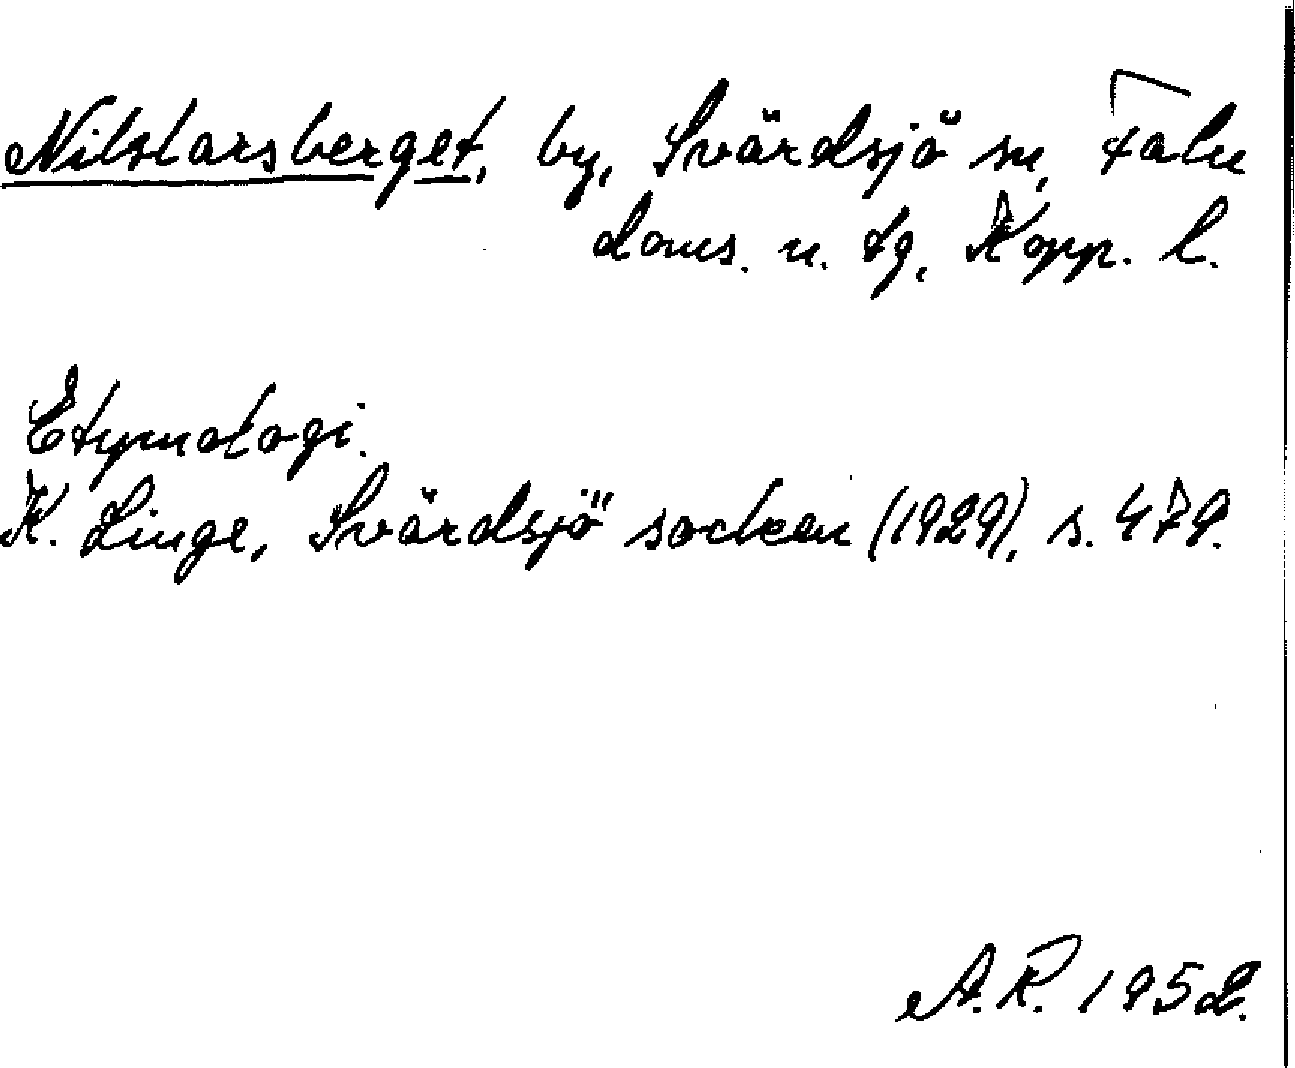 Nilslarsberget, by, Svärdsjö sn, Falu
doms. n. tg, Kopp. l.
Etymologi.
K. Linge, Svärdsjö socken (1929), s. 479.
A.R. 1952.